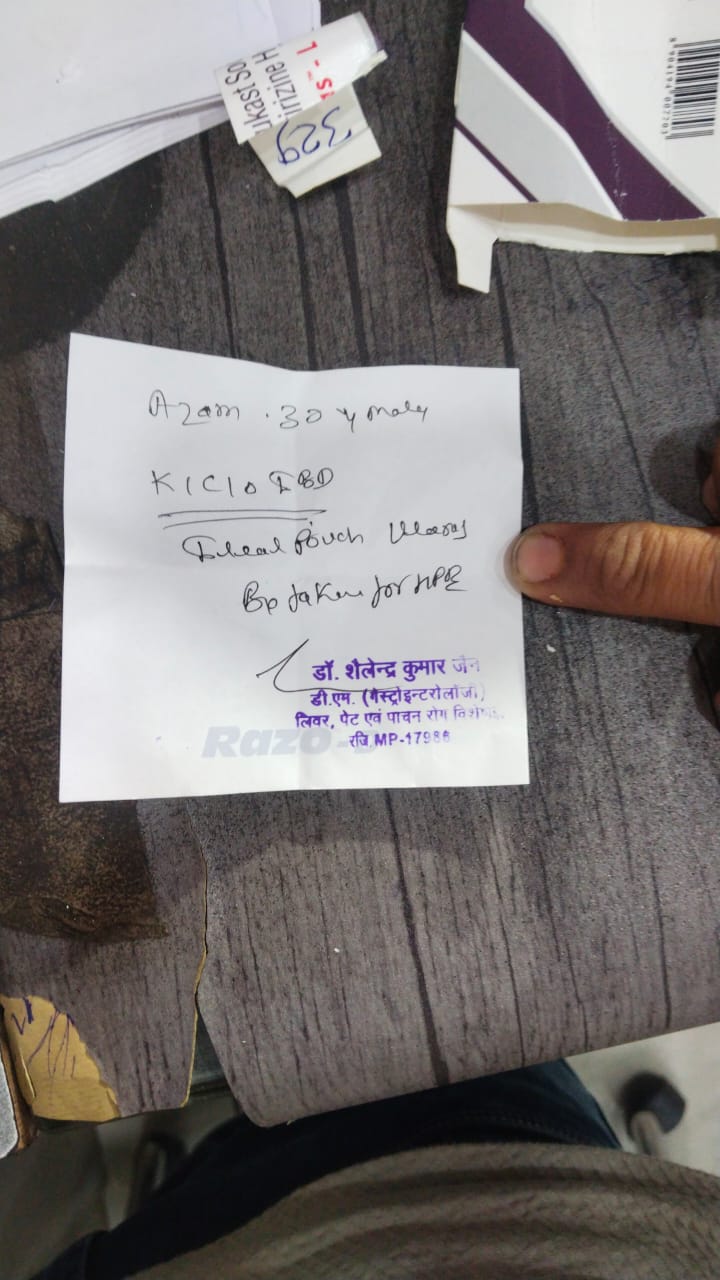 ukast So
irizine H
329
8 904194 007703
Azam . 30 y male
K/C/o IBD
Ileal Pouch Ulcers
Bp taken for HPE
डॉ. शैलेन्द्र कुमार जैन
डी.एम. (गैस्ट्रोइन्टरोलॉजी)
लिवर, पेट एवं पाचन रोग विशेषज्ञ
रजि. MP-17986
Razo-